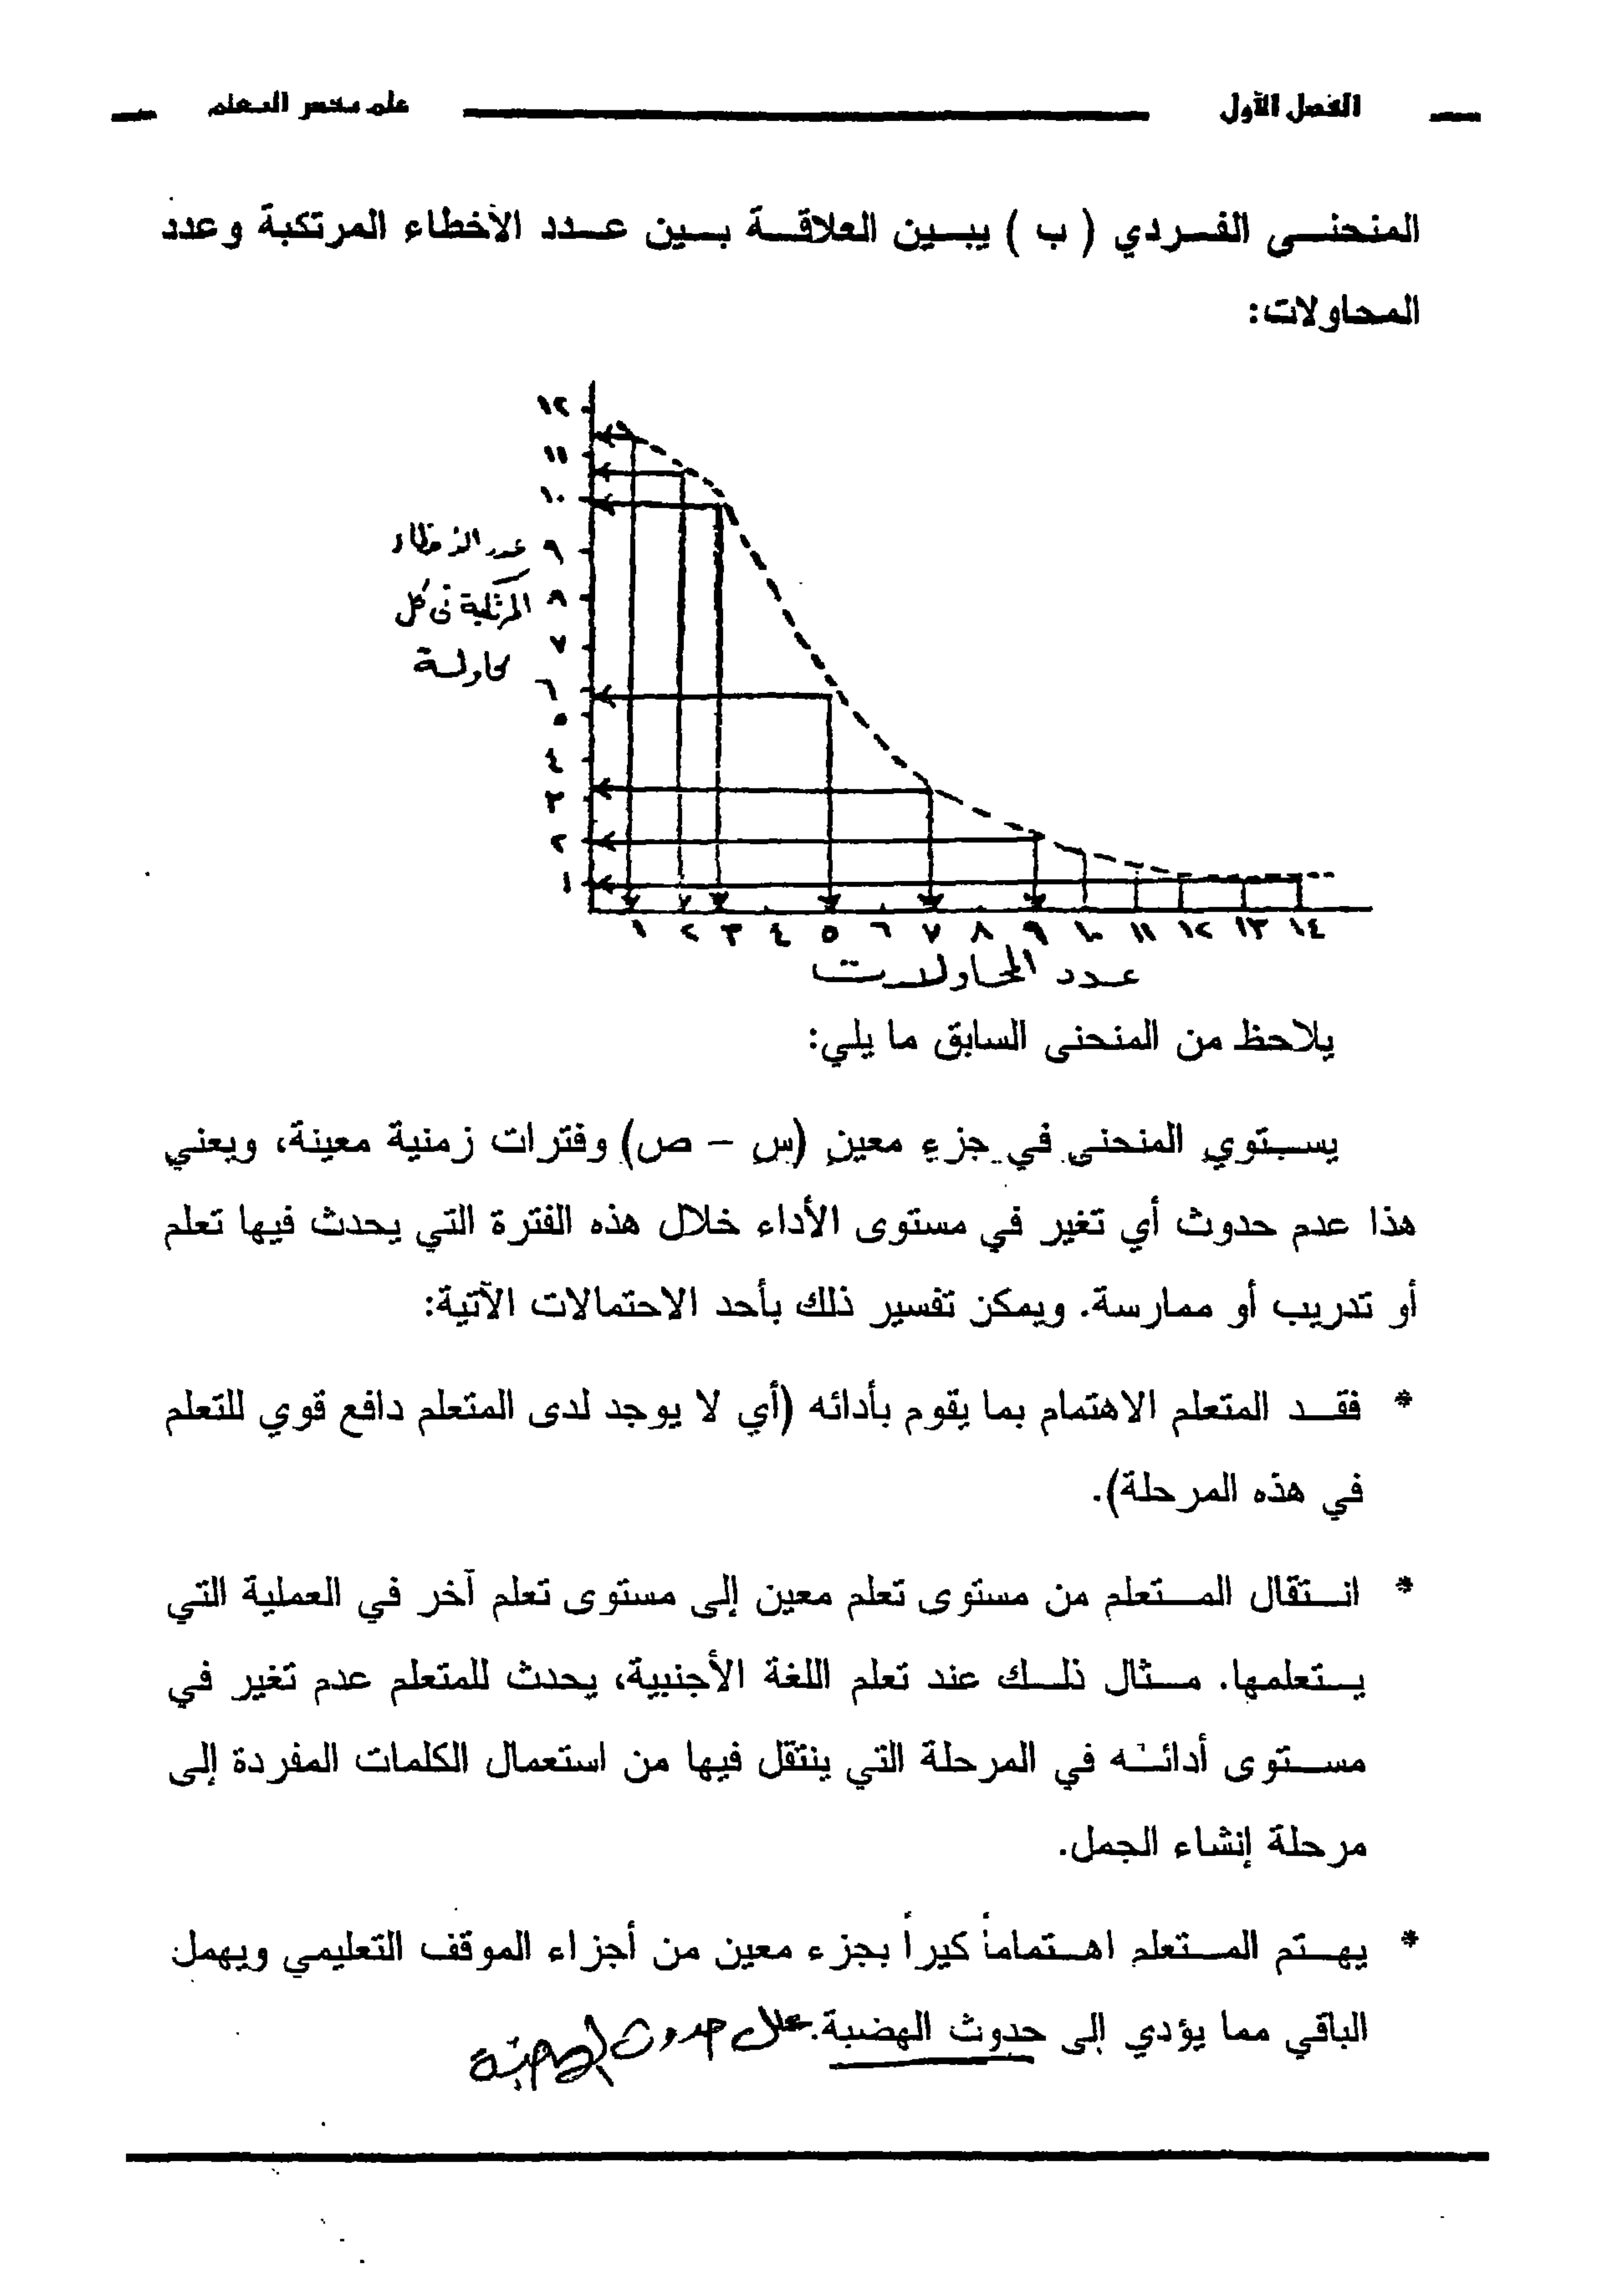 الفصل الأول
علم نفس التعلم
المنحنى الفردي ( ب ) يبين العلاقة بين عدد الأخطاء المرتكبة وعدد
المحاولات:
١٢
١١
١٠
٩
٨
٧
٦
٥
٤
٣
٢
١
عدد الأخطاء
المرتكبة في كل
محاولة
١ ٢ ٣ ٤ ٥ ٦ ٧ ٨ ٩ ١٠ ١١ ١٢ ١٣ ١٤
عدد المحاولات
يلاحظ من المنحنى السابق ما يلي:
يستوي المنحنى في جزء معين (س – ص) وفترات زمنية معينة، ويعني
هذا عدم حدوث أي تغير في مستوى الأداء خلال هذه الفترة التي يحدث فيها تعلم
أو تدريب أو ممارسة. ويمكن تفسير ذلك بأحد الاحتمالات الآتية:
* فقد المتعلم الاهتمام بما يقوم بأدائه (أي لا يوجد لدى المتعلم دافع قوي للتعلم
في هذه المرحلة).
* انتقال المتعلم من مستوى تعلم معين إلى مستوى تعلم آخر في العملية التي
يتعلمها. مثال ذلك عند تعلم اللغة الأجنبية، يحدث للمتعلم عدم تغير في
مستوى أدائه في المرحلة التي ينتقل فيها من استعمال الكلمات المفردة إلى
مرحلة إنشاء الجمل.
* يهتم المتعلم اهتماماً كيراً بجزء معين من أجزاء الموقف التعليمي ويهمل
الباقي مما يؤدي إلى حدوث الهضبة. علل حدوث الهضبة